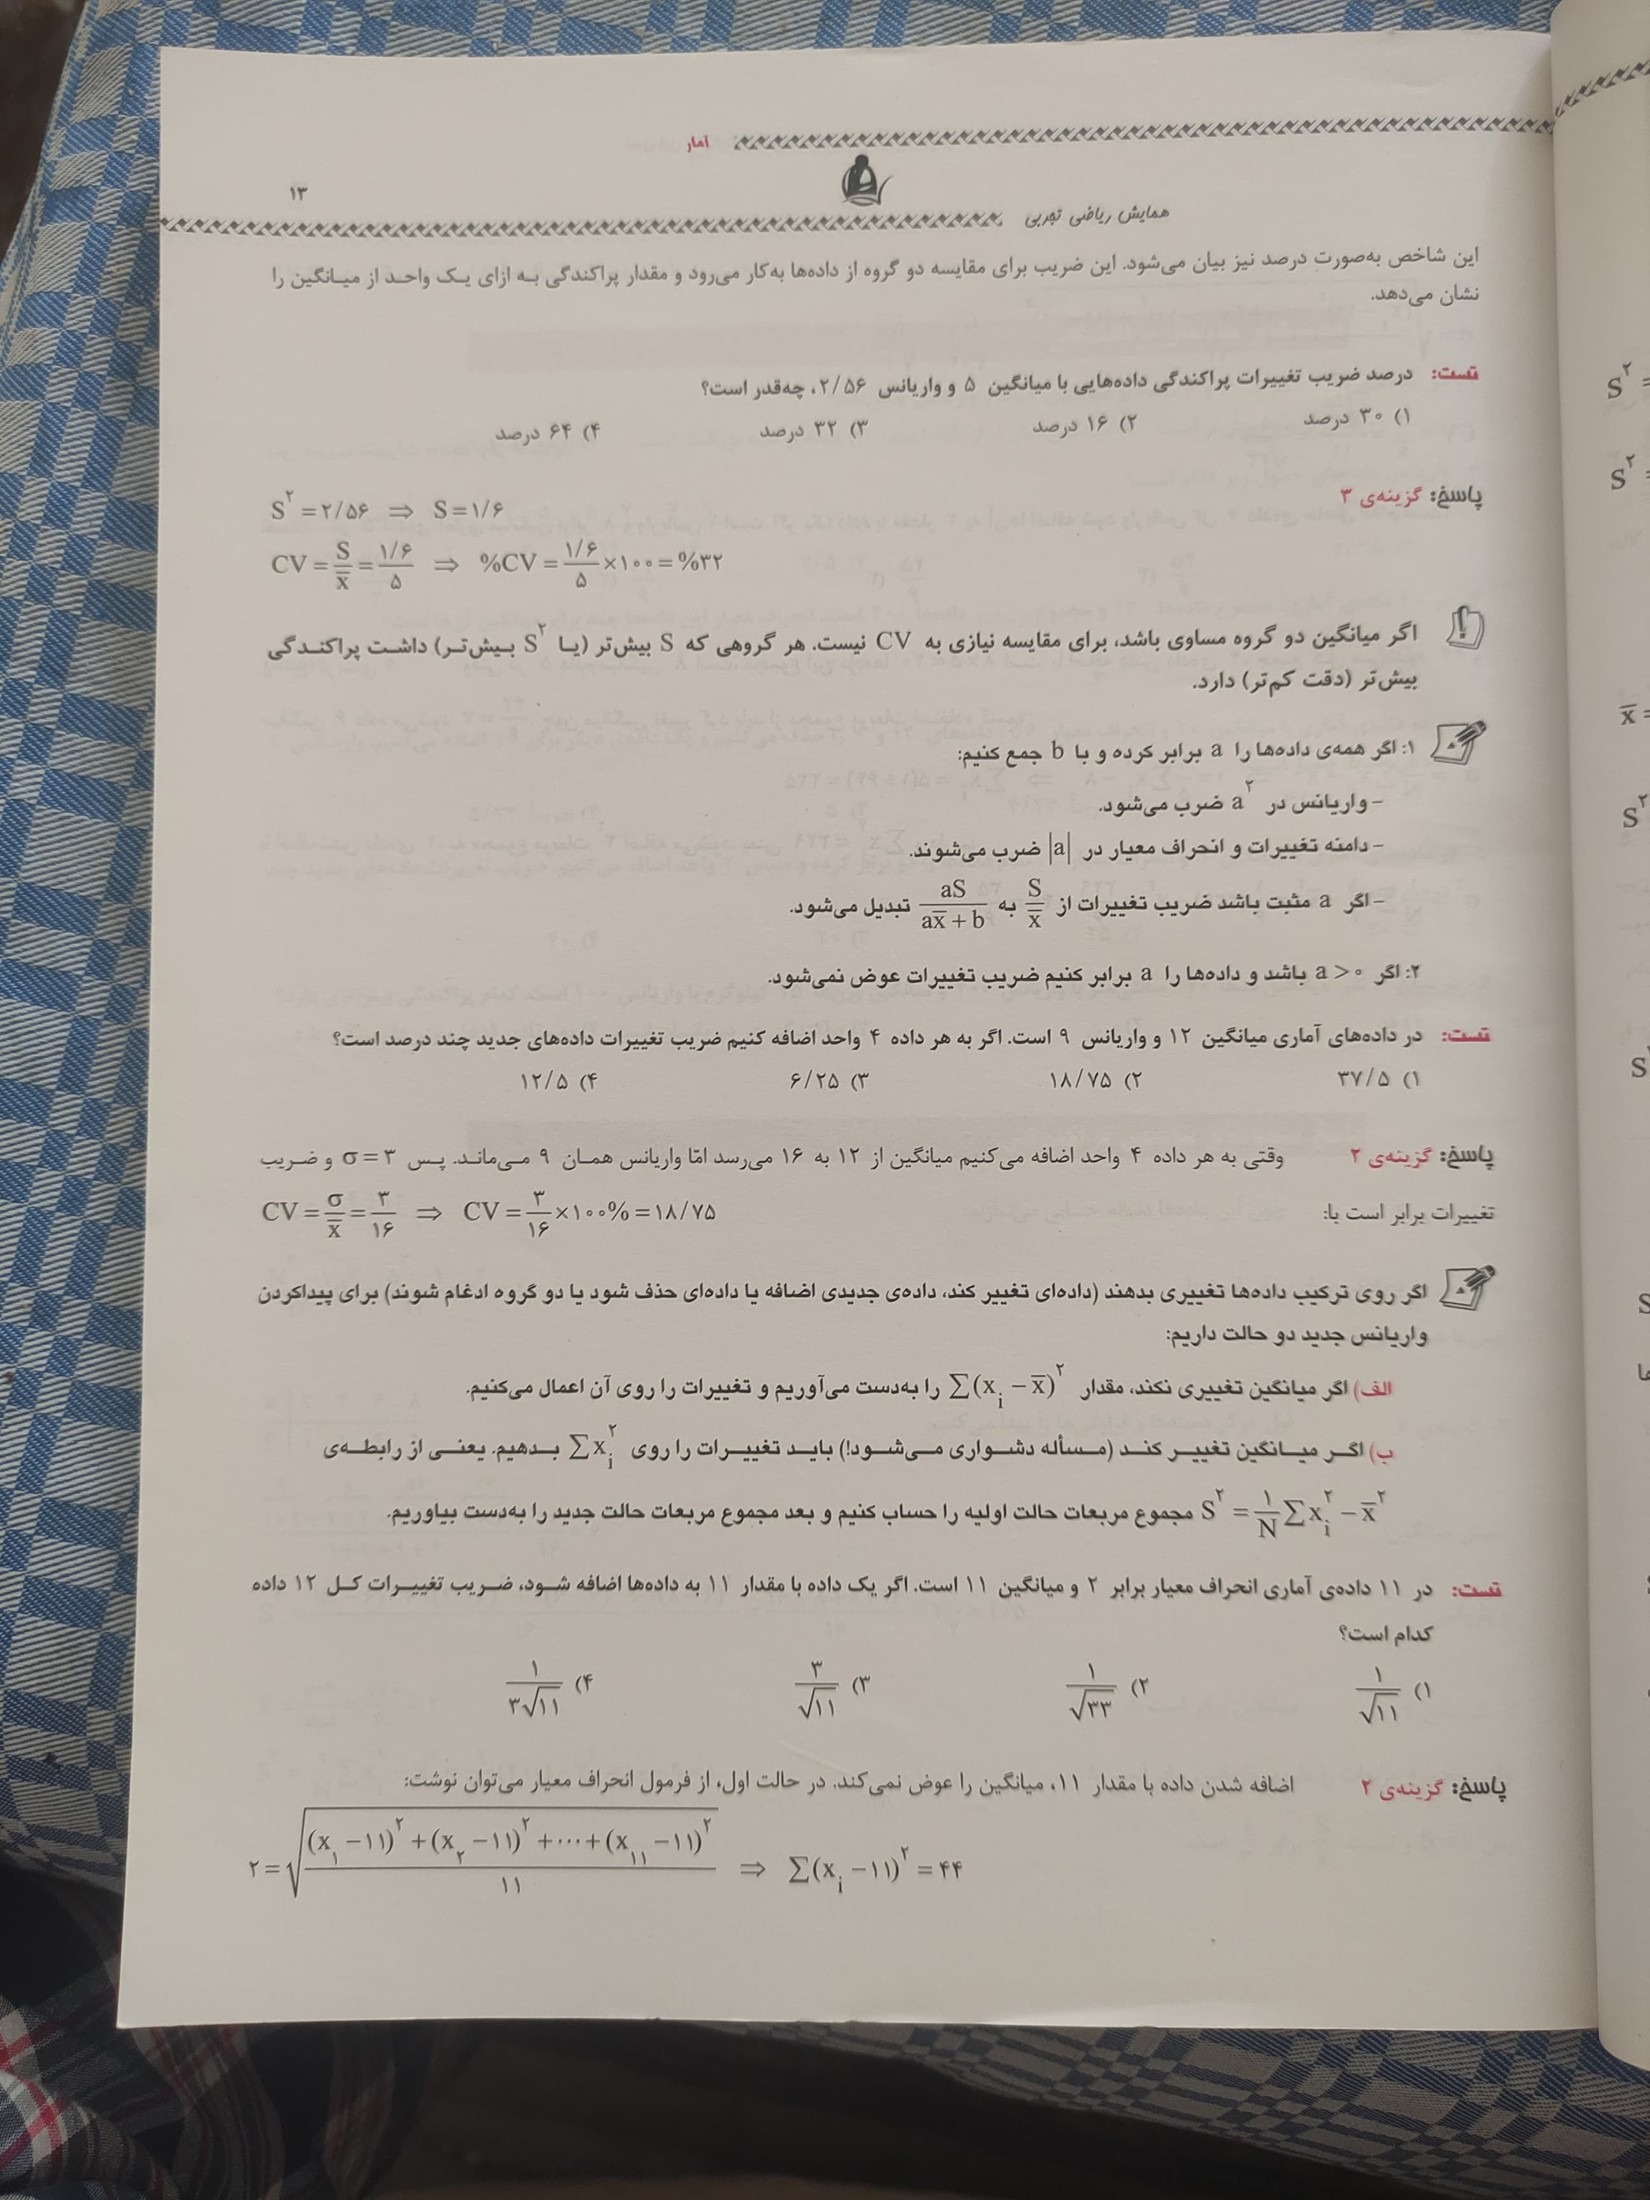 آمار
۱۳
همایش ریاضی تجربی
این شاخص به‌صورت درصد نیز بیان می‌شود. این ضریب برای مقایسه دو گروه از داده‌ها به‌کار می‌رود و مقدار پراکندگی به ازای یک واحد از میانگین را
نشان می‌دهد.
تست: درصد ضریب تغییرات پراکندگی داده‌هایی با میانگین ۵ و واریانس ۲/۵۶، چه‌قدر است؟
۱) ۳۰ درصد ۲) ۱۶ درصد ۳) ۳۲ درصد ۴) ۶۴ درصد
پاسخ: گزینه‌ی ۳
S² = ۲/۵۶ ⇒ S = ۱/۶
CV = S/x̄ = ۱/۶ / ۵ ⇒ %CV = ۱/۶ / ۵ × ۱۰۰ = %۳۲
اگر میانگین دو گروه مساوی باشد، برای مقایسه نیازی به CV نیست. هر گروهی که S بیش‌تر (یا S² بیش‌تر) داشت پراکندگی
بیش‌تر (دقت کم‌تر) دارد.
۱: اگر همه‌ی داده‌ها را a برابر کرده و با b جمع کنیم:
- واریانس در a² ضرب می‌شود.
- دامنه تغییرات و انحراف معیار در |a| ضرب می‌شوند.
- اگر a مثبت باشد ضریب تغییرات از S/x̄ به aS/(ax̄ + b) تبدیل می‌شود.
۲: اگر a > ۰ باشد و داده‌ها را a برابر کنیم ضریب تغییرات عوض نمی‌شود.
تست: در داده‌های آماری میانگین ۱۲ و واریانس ۹ است. اگر به هر داده ۴ واحد اضافه کنیم ضریب تغییرات داده‌های جدید چند درصد است؟
۱) ۳۷/۵ ۲) ۱۸/۷۵ ۳) ۶/۲۵ ۴) ۱۲/۵
پاسخ: گزینه‌ی ۲ وقتی به هر داده ۴ واحد اضافه می‌کنیم میانگین از ۱۲ به ۱۶ می‌رسد امّا واریانس همان ۹ می‌ماند. پس σ = ۳ و ضریب
تغییرات برابر است با: CV = σ/x̄ = ۳/۱۶ ⇒ CV = ۳/۱۶ × ۱۰۰% = ۱۸/۷۵
اگر روی ترکیب داده‌ها تغییری بدهند (داده‌ای تغییر کند، داده‌ی جدیدی اضافه یا داده‌ای حذف شود یا دو گروه ادغام شوند) برای پیداکردن
واریانس جدید دو حالت داریم:
الف) اگر میانگین تغییری نکند، مقدار ∑(xᵢ − x̄)² را به‌دست می‌آوریم و تغییرات را روی آن اعمال می‌کنیم.
ب) اگر میانگین تغییر کند (مسأله دشواری می‌شود!) باید تغییرات را روی ∑xᵢ² بدهیم. یعنی از رابطه‌ی
S² = ۱/N ∑xᵢ² − x̄² مجموع مربعات حالت اولیه را حساب کنیم و بعد مجموع مربعات حالت جدید را به‌دست بیاوریم.
تست: در ۱۱ داده‌ی آماری انحراف معیار برابر ۲ و میانگین ۱۱ است. اگر یک داده با مقدار ۱۱ به داده‌ها اضافه شود، ضریب تغییرات کل ۱۲ داده
کدام است؟
۱) ۱/√۱۱ ۲) ۱/√۳۳ ۳) ۳/√۱۱ ۴) ۱/۳√۱۱
پاسخ: گزینه‌ی ۲ اضافه شدن داده با مقدار ۱۱، میانگین را عوض نمی‌کند. در حالت اول، از فرمول انحراف معیار می‌توان نوشت:
۲ = √((x₁ − ۱۱)² + (x₂ − ۱۱)² + ⋯ + (x₁₁ − ۱۱)² / ۱۱) ⇒ ∑(xᵢ − ۱۱)² = ۴۴
S² =
S² =
x̄ =
S²
S